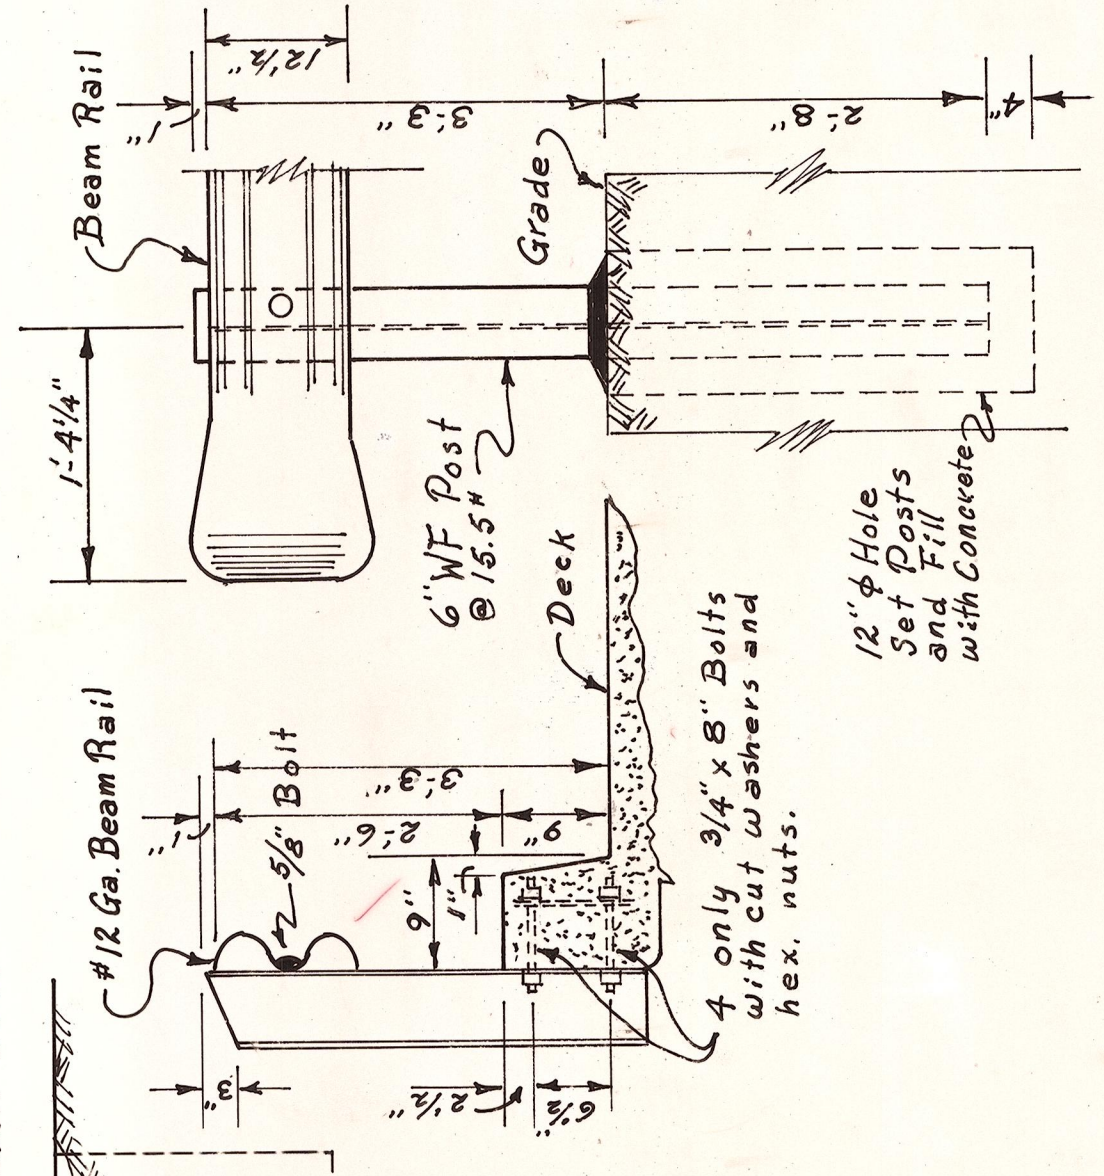 12½"
1"
3'-3"
2'-8"
4"
Beam Rail
Grade
1'-4¼"
6" WF Post
@ 15.5#
12" ϕ Hole
Set Posts
and Fill
with Concrete
Deck
#12 Ga. Beam Rail
5/8" Bolt
1"
3'-3"
2'-6"
9"
9"
1"
3"
2½"
6½"
4 only 3/4" x 8" Bolts
with cut washers and
hex. nuts.